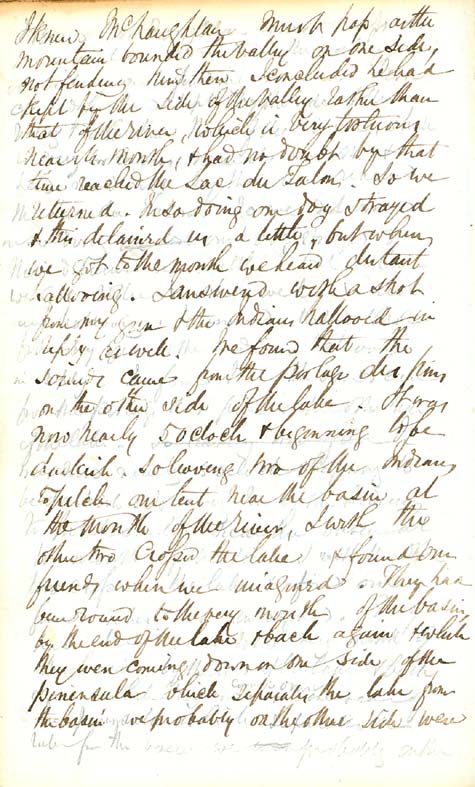 I knew McNaughtan must pass as the
mountain bounded the valley on one side,
not finding him then I concluded he had
kept by the side of the valley rather than
that of the river, which is very tortuous
near its mouth, & had no doubt by that
time reached the Lac du Talon. So we
returned. In so doing one dog strayed
& this detained us a little, but when
we got to the mouth we heard distant
hallooing. I answered with a shot
from my gun & the Indians hallooed in
reply as well. We found that the
sounds came from the portage des pins
on the other side of the lake. It was
now nearly 5 oclock & beginning to be
darkish. So leaving two of the Indians
to pitch our tent near the basin at
the mouth of the river, I with the
other two crossed the lake & found our
friends where we imagined. They had
been round to the very mouth of the basin,
by the end of the lake & back again & while
they were coming down on one side of the
peninsula which separates the lake from
the basin we probably on the other side were